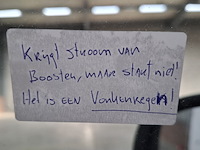 Krijgt stroom van
Boosten, maar start niet!
Het is een Vonkenregen!